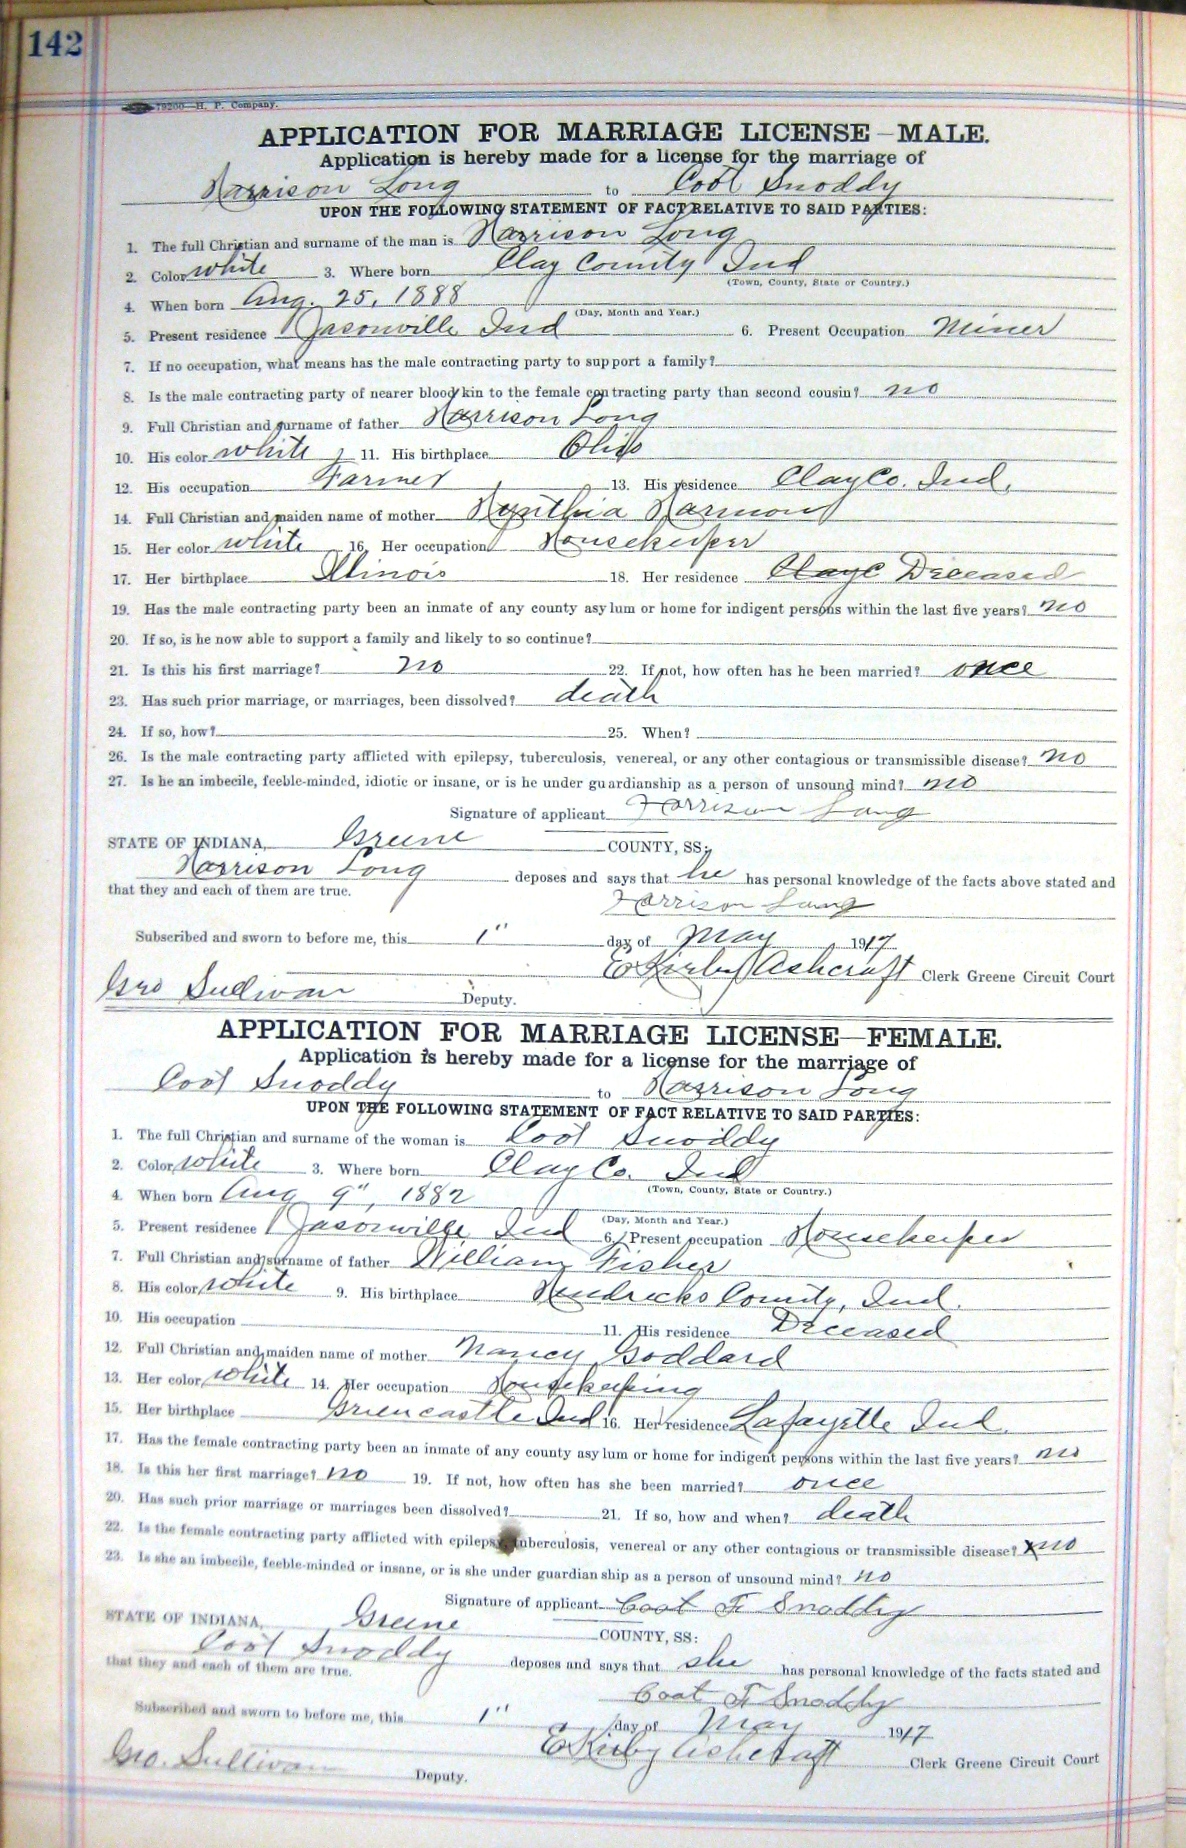 142
79200—H. P. Company.
APPLICATION FOR MARRIAGE LICENSE—MALE.
Application is hereby made for a license for the marriage of
Harrison Long to Coot Snoddy
UPON THE FOLLOWING STATEMENT OF FACT RELATIVE TO SAID PARTIES:
1. The full Christian and surname of the man is Harrison Long
2. Color white 3. Where born Clay County Ind
(Town, County, State or Country.)
4. When born Aug. 25, 1888
(Day, Month and Year.)
5. Present residence Jasonville Ind 6. Present Occupation Miner
7. If no occupation, what means has the male contracting party to support a family?
8. Is the male contracting party of nearer blood kin to the female contracting party than second cousin? no
9. Full Christian and surname of father Harrison Long
10. His color white 11. His birthplace Ohio
12. His occupation Farmer 13. His residence Clay Co. Ind.
14. Full Christian and maiden name of mother Kynthia Harmon
15. Her color white 16. Her occupation Housekeeper
17. Her birthplace Illinois 18. Her residence Clay C Deceased
19. Has the male contracting party been an inmate of any county asylum or home for indigent persons within the last five years? no
20. If so, is he now able to support a family and likely to so continue?
21. Is this his first marriage? no 22. If not, how often has he been married? once
23. Has such prior marriage, or marriages, been dissolved? death
24. If so, how? 25. When?
26. Is the male contracting party afflicted with epilepsy, tuberculosis, venereal, or any other contagious or transmissible disease? no
27. Is he an imbecile, feeble-minded, idiotic or insane, or is he under guardianship as a person of unsound mind? no
Signature of applicant Harrison Long
STATE OF INDIANA, Greene COUNTY, SS:
Harrison Long deposes and says that he has personal knowledge of the facts above stated and
that they and each of them are true.
Harrison Long
Subscribed and sworn to before me, this 1" day of May 1917
E Kirby Ashcraft Clerk Greene Circuit Court
Geo Sullivan Deputy.
APPLICATION FOR MARRIAGE LICENSE—FEMALE.
Application is hereby made for a license for the marriage of
Coot Snoddy to Harrison Long
UPON THE FOLLOWING STATEMENT OF FACT RELATIVE TO SAID PARTIES:
1. The full Christian and surname of the woman is Coot Snoddy
2. Color white 3. Where born Clay Co. Ind
(Town, County, State or Country.)
4. When born Aug 9", 1882
(Day, Month and Year.)
5. Present residence Jasonville, Ind 6. Present occupation Housekeeper
7. Full Christian and surname of father William Fisher
8. His color white 9. His birthplace Hendricks County, Ind.
10. His occupation 11. His residence Deceased
12. Full Christian and maiden name of mother Nancy Goddard
13. Her color white 14. Her occupation Housekeeping
15. Her birthplace Greencastle Ind 16. Her residence Lafayette Ind.
17. Has the female contracting party been an inmate of any county asylum or home for indigent persons within the last five years? no
18. Is this her first marriage? no 19. If not, how often has she been married? once
20. Has such prior marriage or marriages been dissolved? 21. If so, how and when? death
22. Is the female contracting party afflicted with epilepsy, tuberculosis, venereal or any other contagious or transmissible disease? x no
23. Is she an imbecile, feeble-minded or insane, or is she under guardianship as a person of unsound mind? no
Signature of applicant Coot F Snoddy
STATE OF INDIANA, Greene COUNTY, SS:
Coot Snoddy deposes and says that she has personal knowledge of the facts stated and
that they and each of them are true.
Coot F Snoddy
Subscribed and sworn to before me, this 1" day of May 1917
E Kirby Ashcraft Clerk Greene Circuit Court
Geo. Sullivan Deputy.